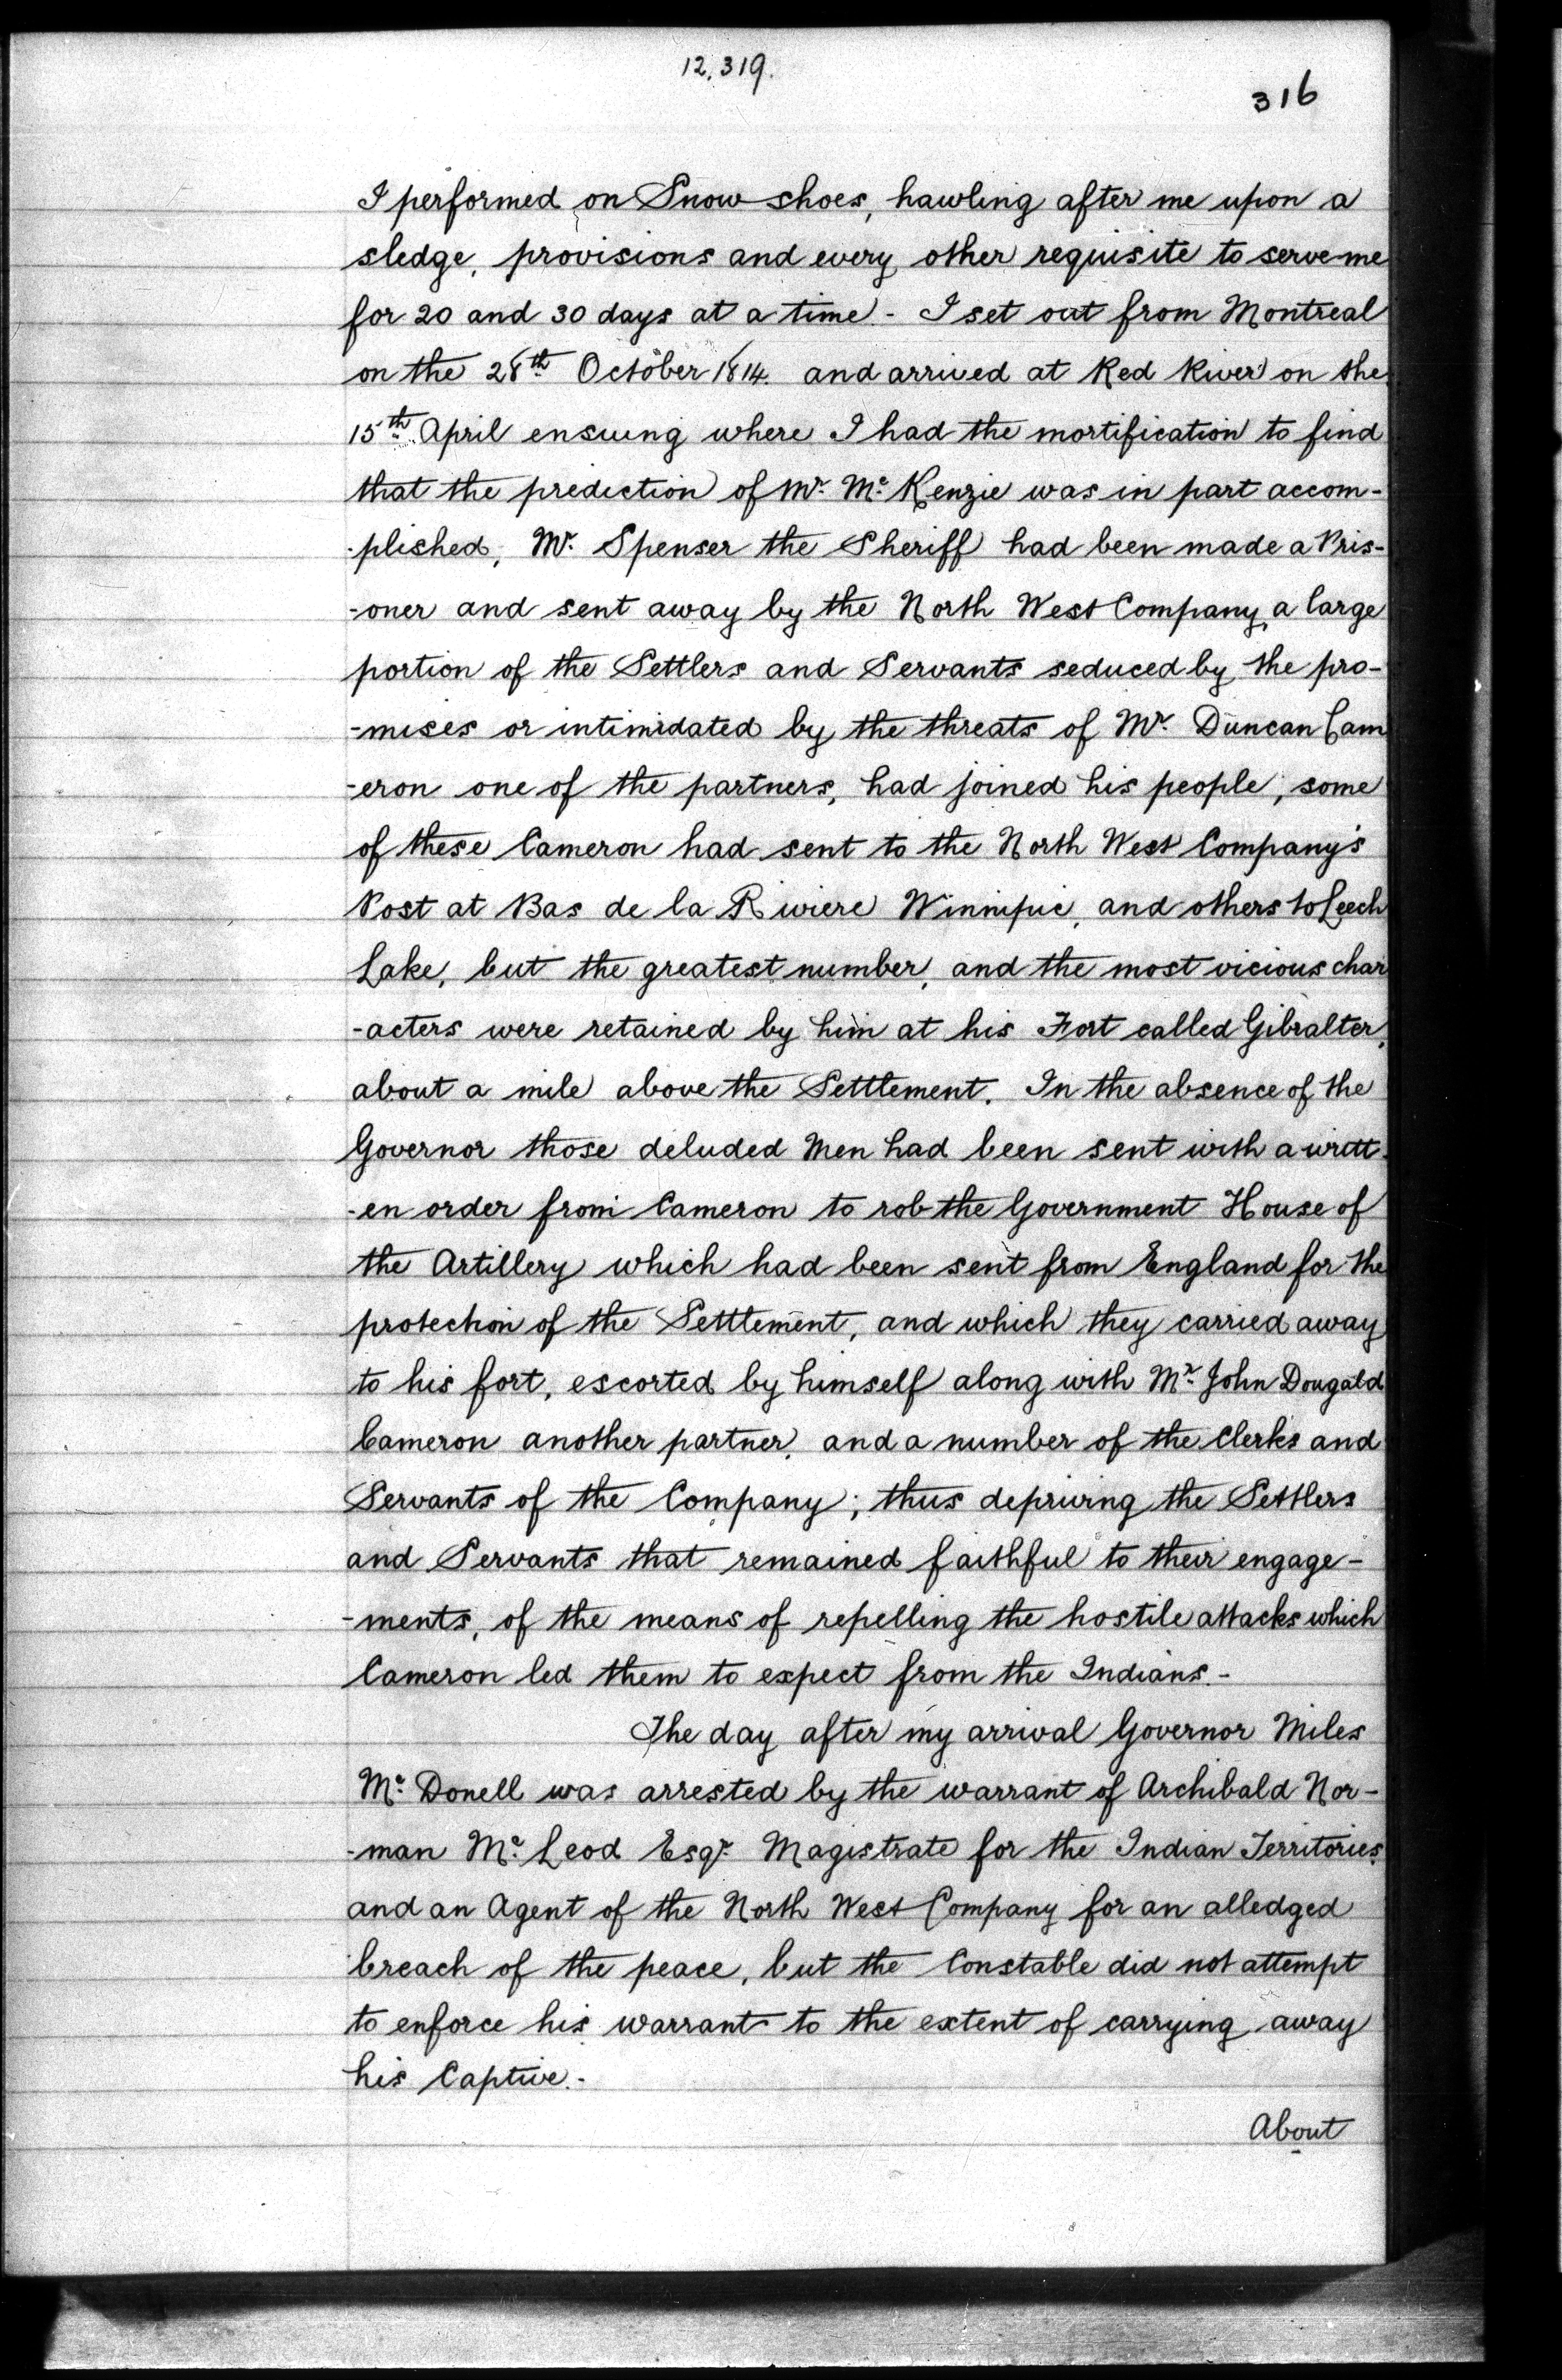 12,319.
316
I performed on Snow shoes, hawling after me upon a
sledge, provisions and every other requisite to serve me
for 20 and 30 days at a time. - I set out from Montreal
on the 28th October 1814. and arrived at Red River on the
15th April ensuing where I had the mortification to find
that the prediction of Mr. Mc Kenzie was in part accom-
-plished, Mr. Spenser the Sheriff had been made a Pris-
-oner and sent away by the North West Company, a large
portion of the Settlers and Servants seduced by the pro-
-mises or intimidated by the threats of Mr. Duncan Cam
-eron one of the partners, had joined his people, some
of these Cameron had sent to the North West Company's
Post at Bas de la Riviere Winnipic, and others to Leech
Lake, but the greatest number, and the most vicious char
-acters were retained by him at his Fort called Gibralter,
about a mile above the Settlement. In the absence of the
Governor those deluded Men had been sent with a writt-
-en order from Cameron to rob the Government House of
the Artillery which had been sent from England for the
protection of the Settlement, and which they carried away
to his fort, escorted by himself along with Mr. John Dougald
Cameron another partner, and a number of the Clerks and
Servants of the Company; thus depriving the Settlers
and Servants that remained faithful to their engage-
-ments, of the means of repelling the hostile attacks which
Cameron led them to expect from the Indians. -
The day after my arrival Governor Miles
Mc Donell was arrested by the warrant of Archibald Nor-
-man Mc Leod Esqr. Magistrate for the Indian Territories
and an Agent of the North West Company for an alledged
breach of the peace, but the Constable did not attempt
to enforce his warrant to the extent of carrying away
his Captive. -
About